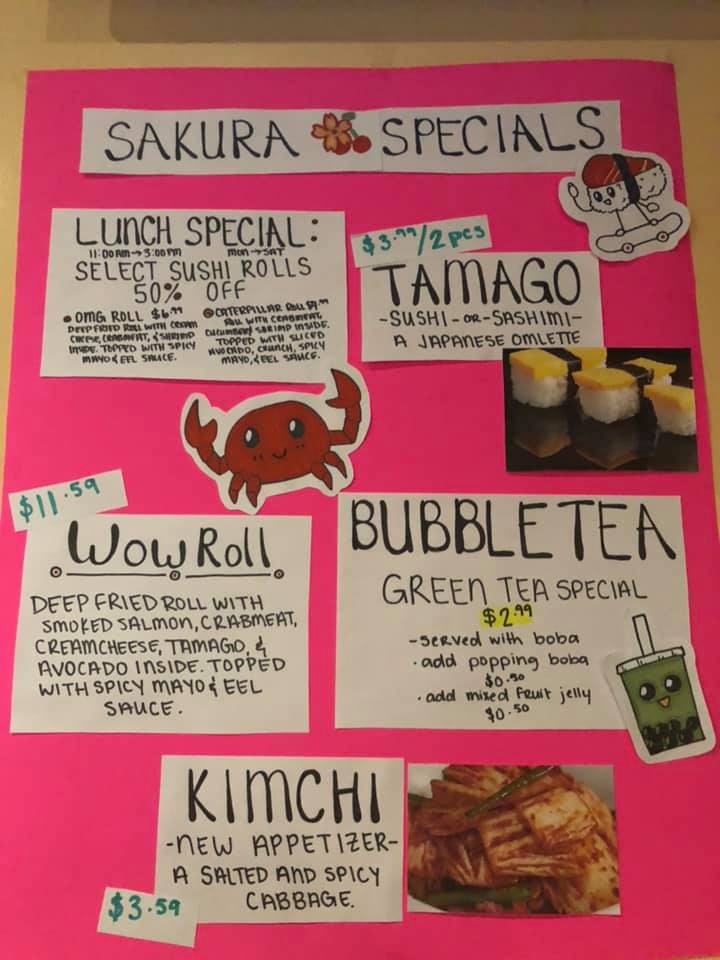 SAKURA SPECIALS
LUNCH SPECIAL:
11:00AM→3:00PM MON→SAT
SELECT SUSHI ROLLS
50% OFF
OMG ROLL $6.99
DEEP FRIED ROLL WITH CREAM
CHEESE, CRABMEAT, & SHRIMP
INSIDE. TOPPED WITH SPICY
MAYO & EEL SAUCE.
CATERPILLAR ROLL
ROLL WITH CRABMEAT,
CUCUMBER, SHRIMP INSIDE.
TOPPED WITH SLICED
AVOCADO, CRUNCH, SPICY
MAYO, & EEL SAUCE.
$3.99/2pcs
TAMAGO
-SUSHI-OR-SASHIMI-
A JAPANESE OMLETTE
$11.59
WOW ROLL
DEEP FRIED ROLL WITH
SMOKED SALMON, CRABMEAT,
CREAMCHEESE, TAMAGO, &
AVOCADO INSIDE. TOPPED
WITH SPICY MAYO & EEL
SAUCE.
BUBBLE TEA
GREEN TEA SPECIAL
$2.99
-served with boba
· add popping boba
$0.50
· add mixed fruit jelly
$0.50
KIMCHI
-NEW APPETIZER-
A SALTED AND SPICY
CABBAGE.
$3.59